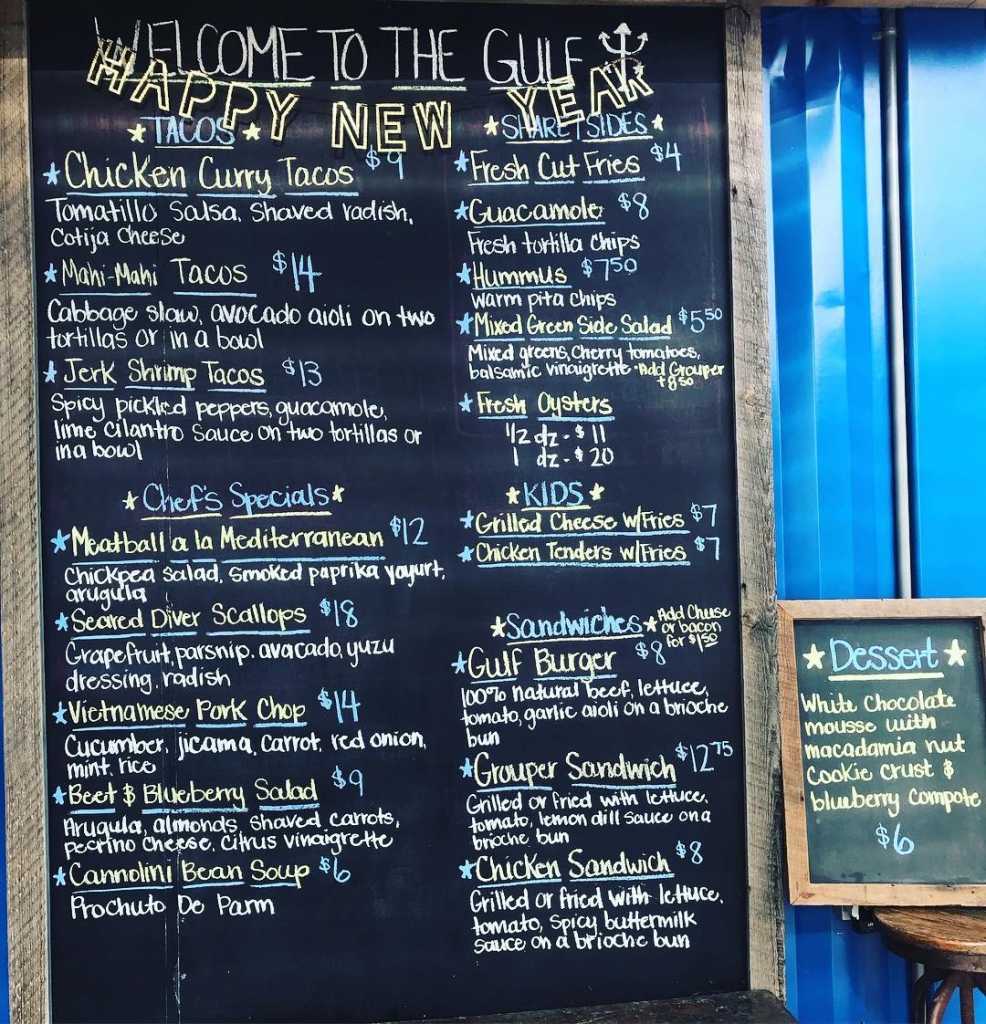 WELCOME TO THE GULF
HAPPY NEW YEAR
TACOS
Chicken Curry Tacos $9
Tomatillo Salsa, shaved radish,
Cotija Cheese
Mahi-Mahi Tacos $14
Cabbage slaw, avocado aioli on two
tortillas or in a bowl
Jerk Shrimp Tacos $13
Spicy pickled peppers, guacamole,
lime cilantro sauce on two tortillas or
in a bowl
Chef's Specials
Meatball a la Mediterranean $12
Chickpea salad, smoked paprika yogurt,
arugula
Seared Diver Scallops $18
Grapefruit, parsnip, avacado, yuzu
dressing, radish
Vietnamese Pork Chop $14
Cucumber, jicama, carrot, red onion,
mint, rice
Beet & Blueberry Salad $9
Arugula, almonds, shaved carrots,
pecrino cheese, citrus vinaigrette
Cannolini Bean Soup $6
Prochuto De Parm
SHARE | SIDES
Fresh Cut Fries $4
Guacamole $8
Fresh tortilla chips
Hummus $7.50
Warm pita chips
Mixed Green Side Salad $5.50
Mixed greens, cherry tomatoes,
balsamic vinaigrette *Add Grouper
+8.50
Fresh Oysters
1/2 dz - $11
1 dz - $20
KIDS
Grilled Cheese w/Fries $7
Chicken Tenders w/Fries $7
Sandwiches Add Cheese
or bacon
for $1.50
Gulf Burger $8
100% natural beef, lettuce,
tomato, garlic aioli on a brioche
bun
Grouper Sandwich $12.75
Grilled or fried with lettuce,
tomato, lemon dill sauce on a
brioche bun
Chicken Sandwich $8
Grilled or fried with lettuce,
tomato, spicy buttermilk
sauce on a brioche bun
Dessert
White Chocolate
mousse with
macadamia nut
cookie crust &
blueberry compote
$6